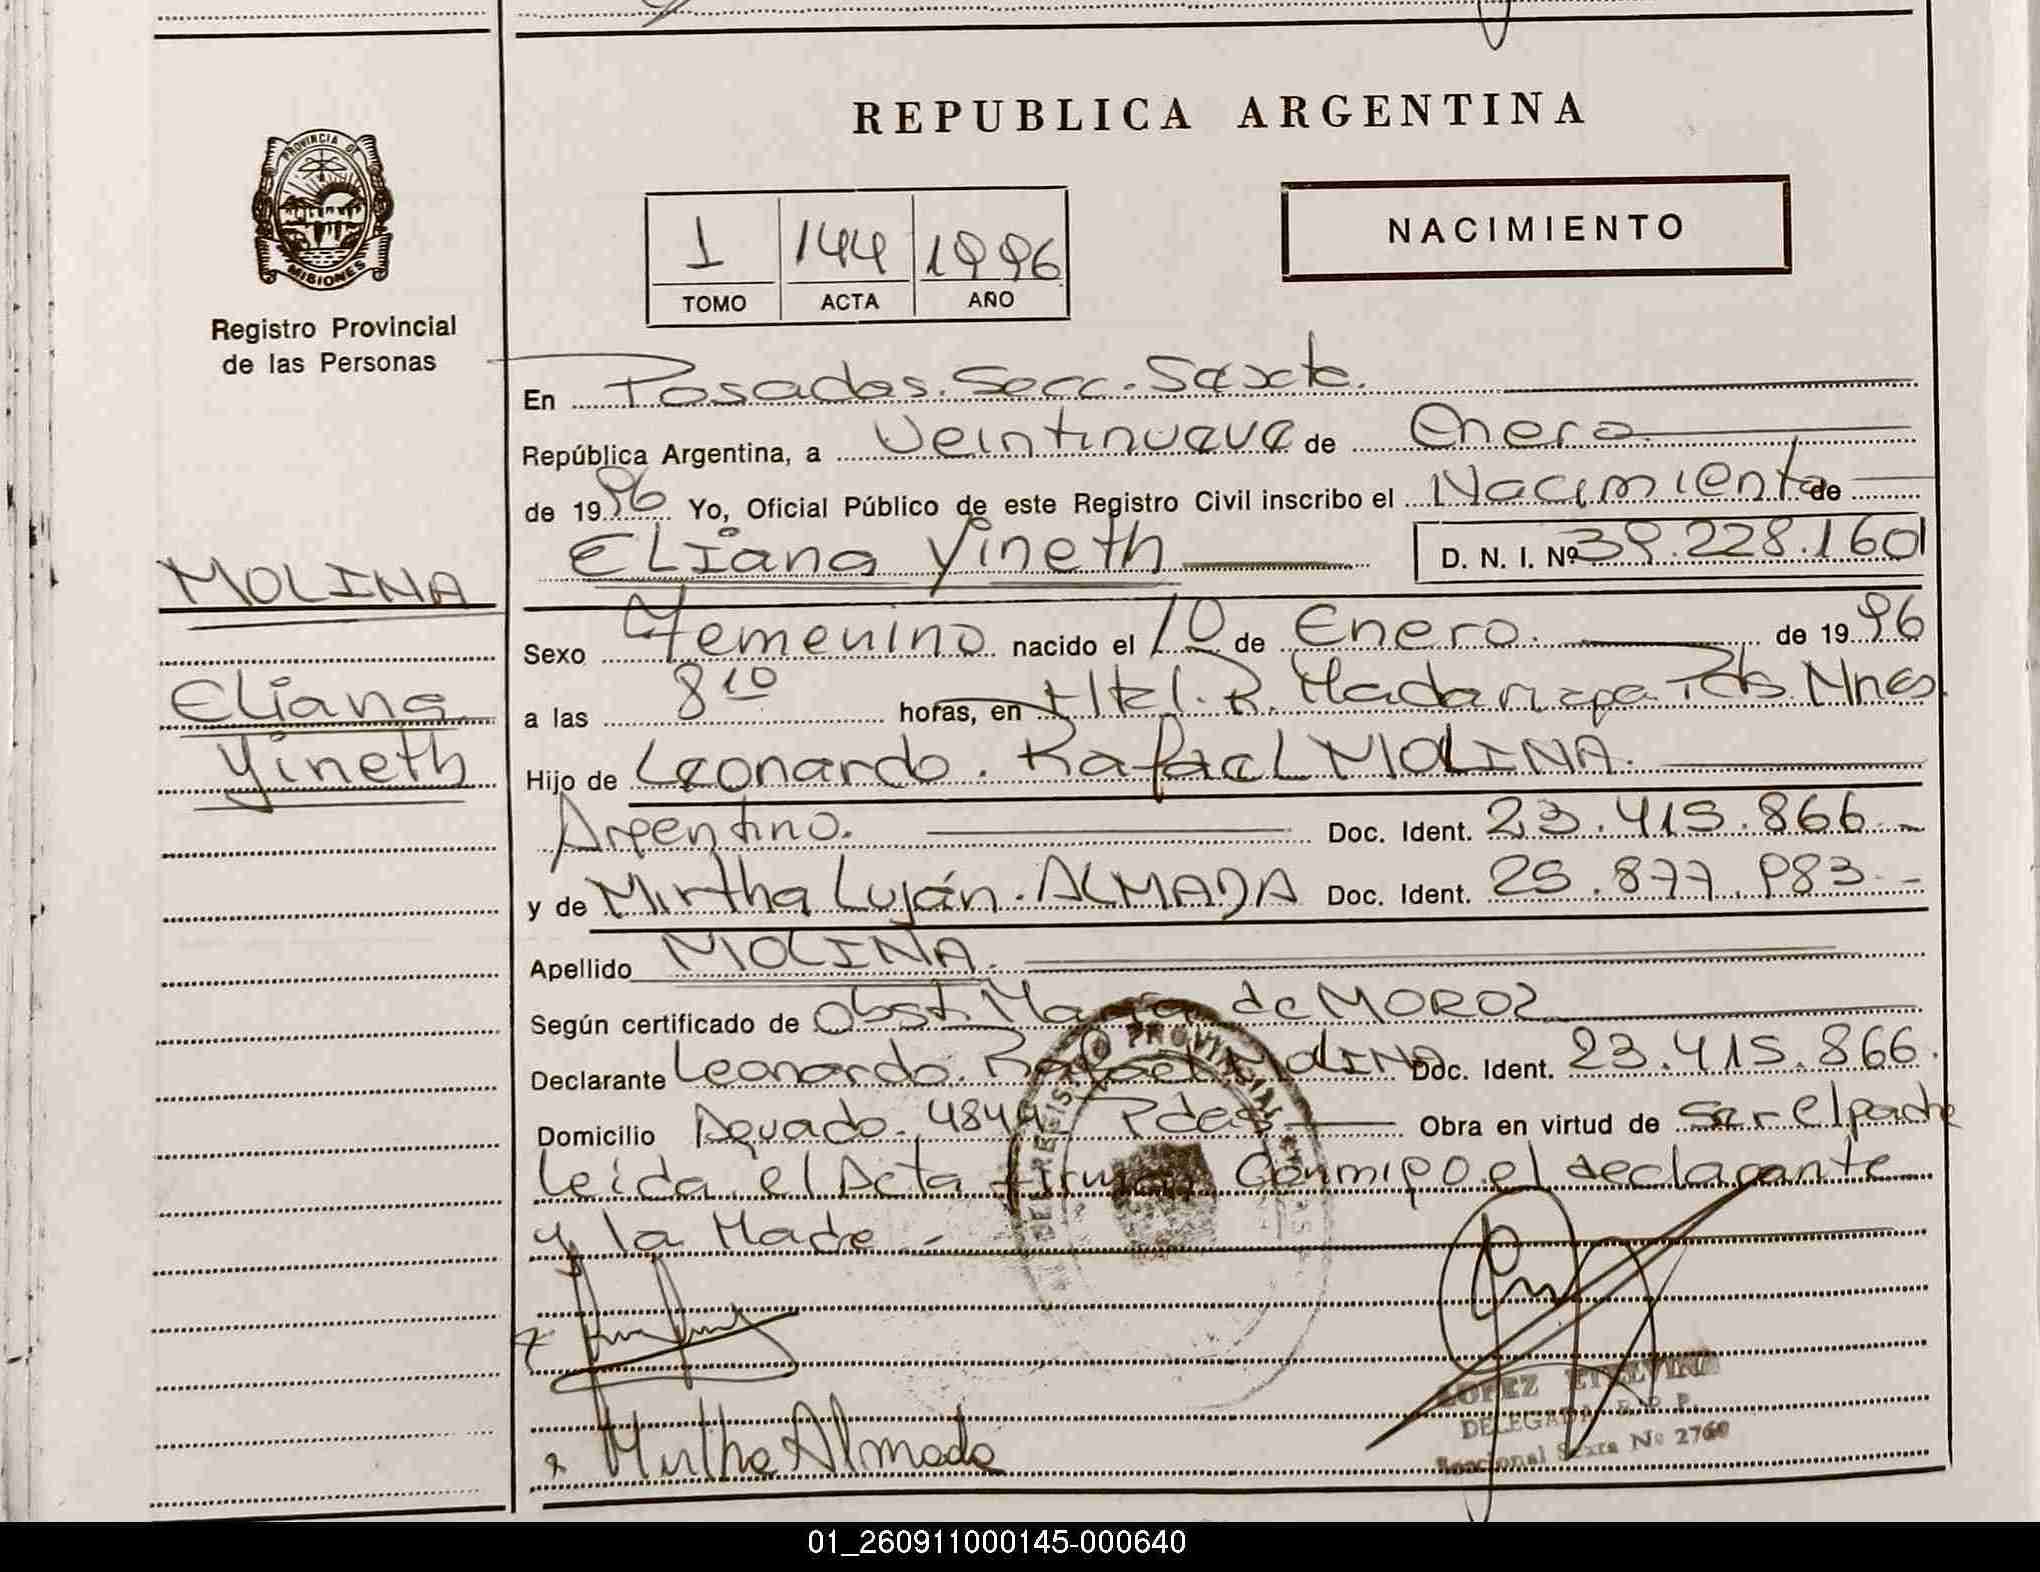 REPUBLICA ARGENTINA
PROVINCIA DE
MISIONES
Registro Provincial
de las Personas
1 144 1996
TOMO ACTA AÑO
NACIMIENTO
En Posadas. Secc. Sexta.
República Argentina, a Veintinueve de Enero
de 1996 Yo, Oficial Público de este Registro Civil inscribo el Nacimiento de
MOLINA
Eliana
Yineth
ELIana Yineth D. N. I. Nº 39.228.160
Sexo Femenino nacido el 10 de Enero. de 1996
a las 8 10 horas, en Htal. R. Madariaga Pdas. Mnes.
Hijo de Leonardo. Rafael MOLINA.
Argentino. Doc. Ident. 23.415.866.-
y de Mirtha Luján. ALMADA Doc. Ident. 25.877.983.-
Apellido MOLINA.
Según certificado de Obst. María de MOROZ
Declarante Leonardo. Rafael MOLINA Doc. Ident. 23.415.866.
Domicilio Aguado. 4844 Pdas Obra en virtud de ser el padre
Leída el Acta firman Conmigo el declarante
y la Madre.-
Mirtha Almada
LOPEZ ETELVINA
DELEGADA R. P. P.
Seccional Sexta Nº 2760
01_260911000145-000640